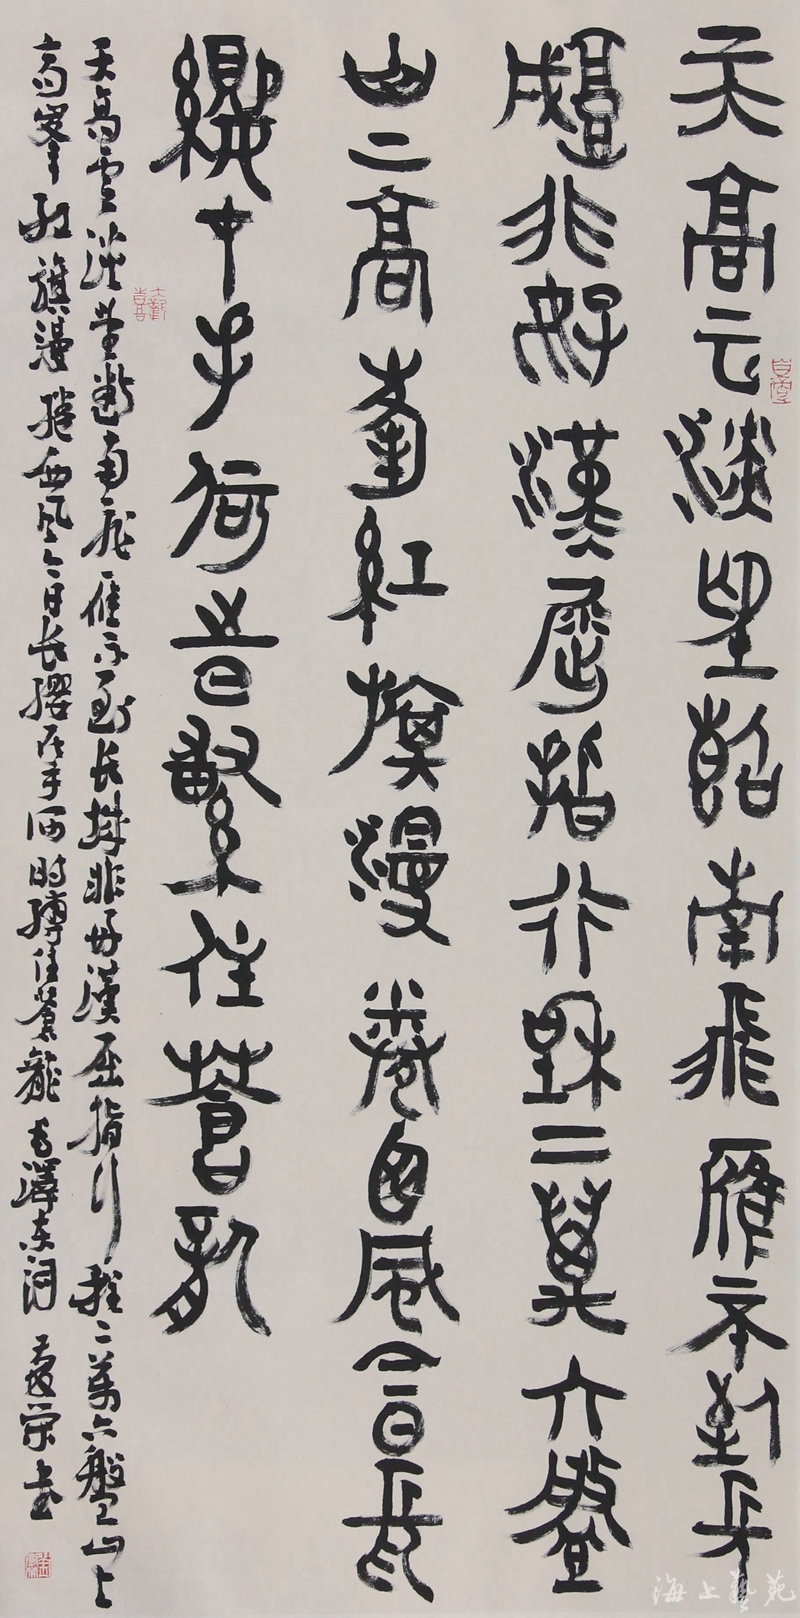 天高云淡望斷南飛雁不到長
城非好漢屈指行程二萬六盤
山上高峯紅旗漫卷西風今日長
纓在手何時縛住蒼龍
天高雲淡望斷南飛雁不到长城非好漢屈指行程二萬六盤山上
高峯紅旗漫捲西風今日长纓在手何時縛住蒼龍毛澤東詞 榮書
海上藝苑